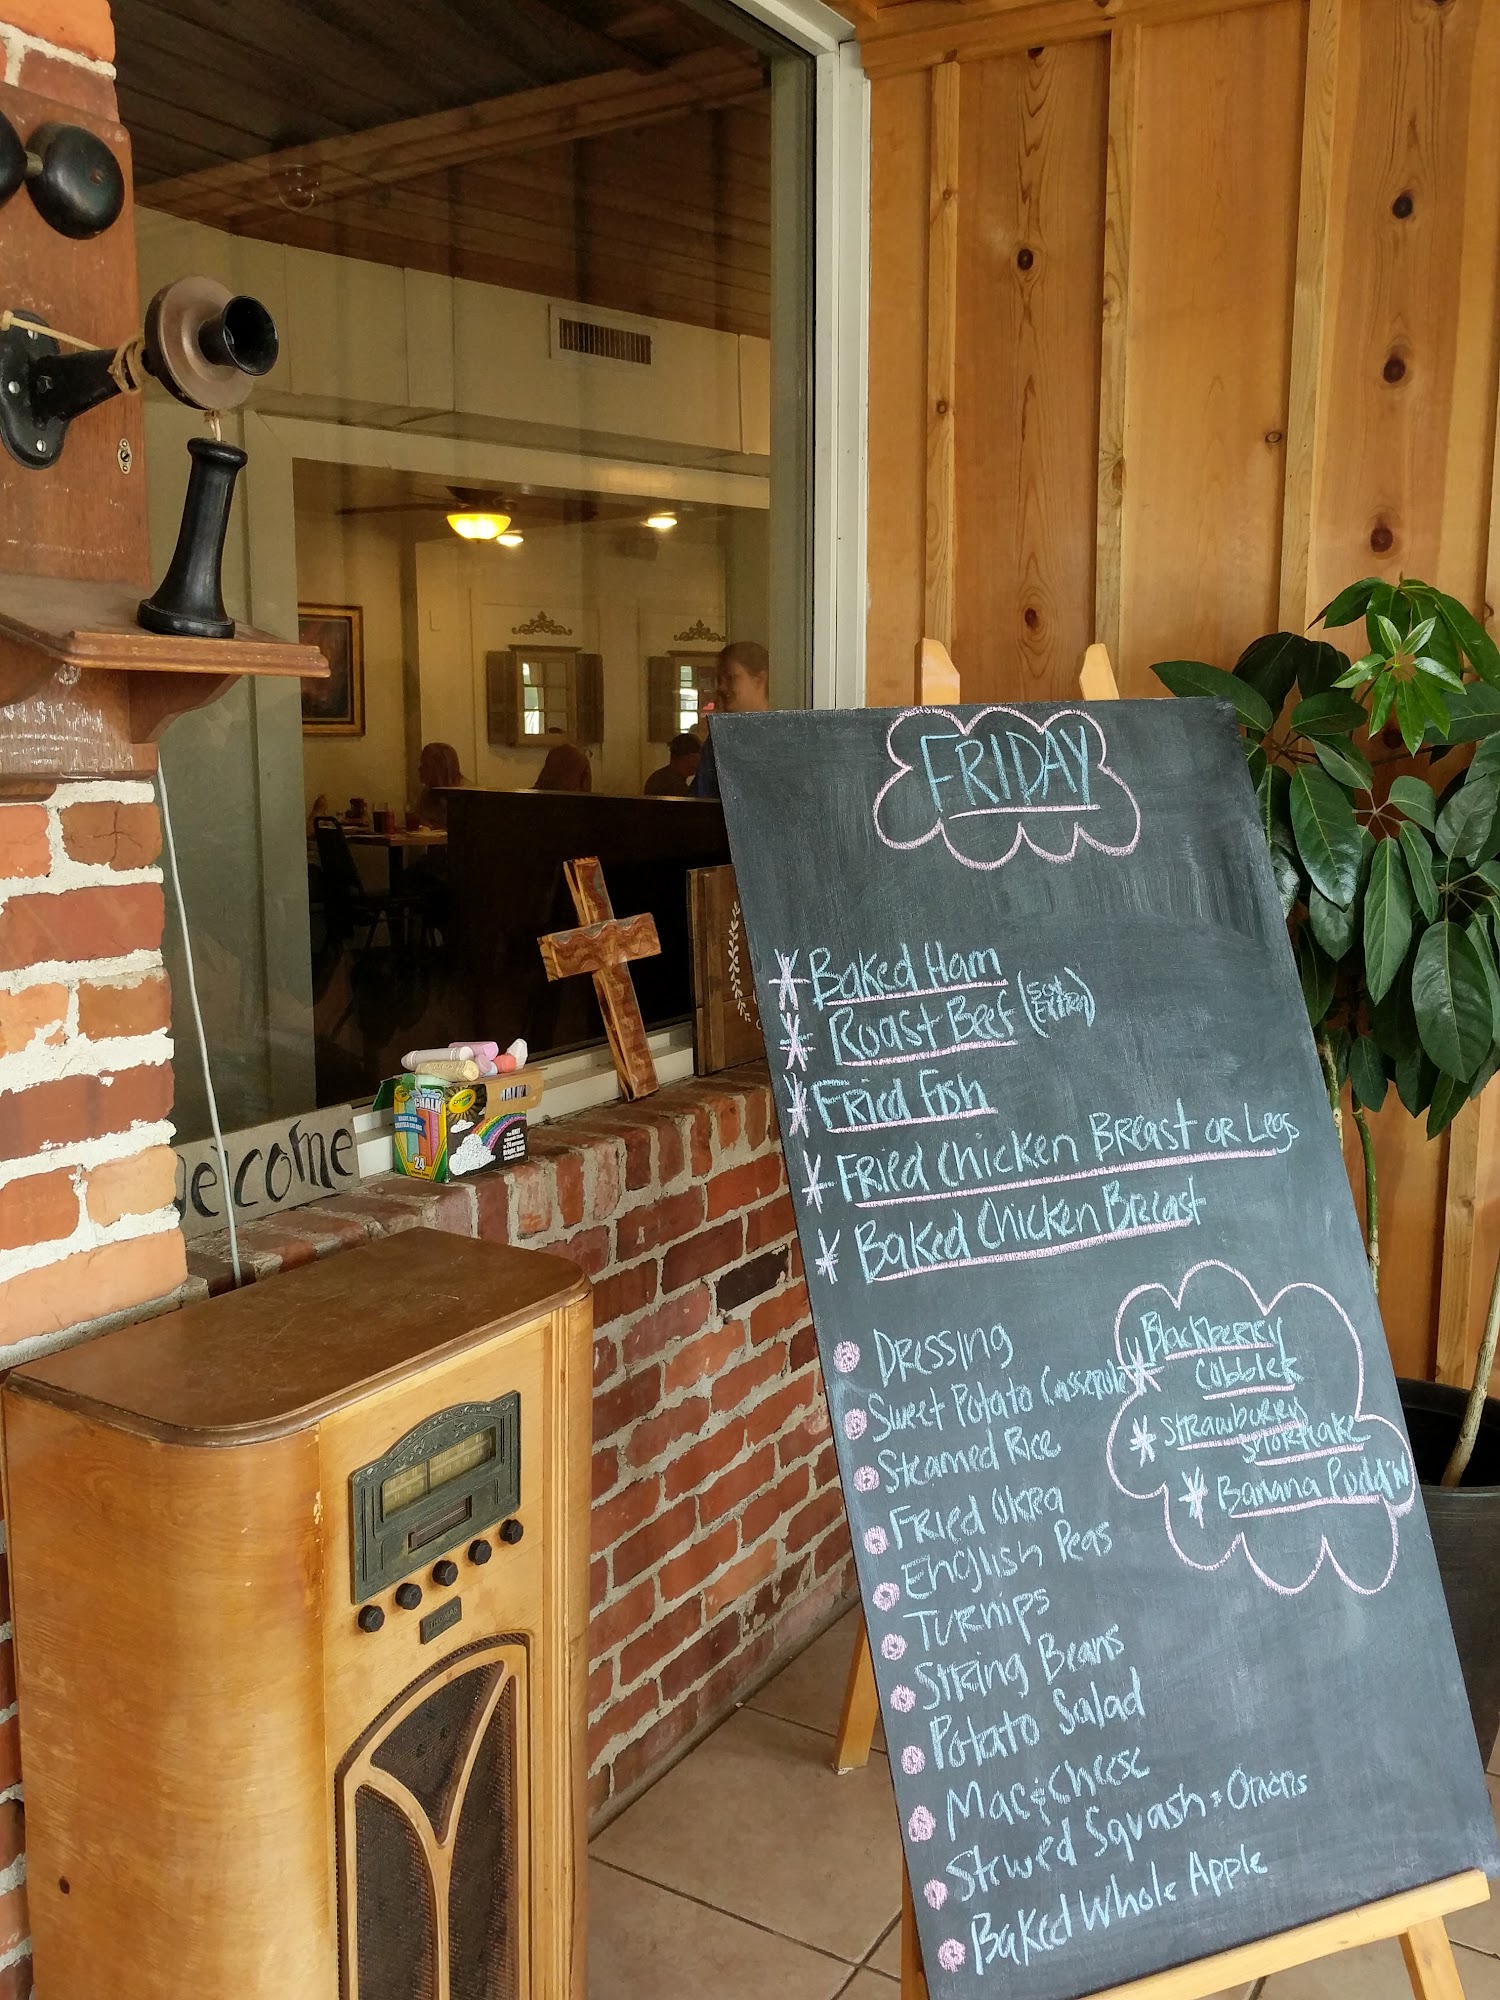 FRIDAY
* Baked Ham
* Roast Beef (50¢ EXTRA)
* Fried Fish
* Fried Chicken Breast or Legs
* Baked Chicken Breast
Dressing
Sweet Potato Casserole
Steamed Rice
Fried Okra
English Peas
Turnips
String Beans
Potato Salad
Mac & Cheese
Stewed Squash & Onions
Baked Whole Apple
* Blackberry
Cobbler
* Strawberry
Shortcake
* Banana Pudd'n
welcome
Crayola
CHALK
24
THOMAS